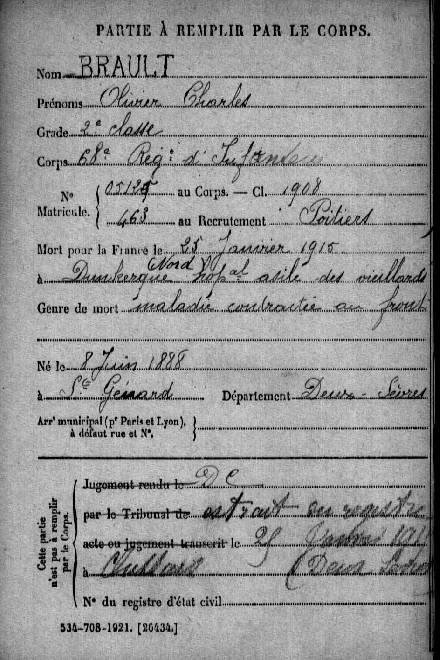 PARTIE À REMPLIR PAR LE CORPS.
Nom BRAULT
Prénoms Olivier Charles
Grade 2e classe
Corps 68e Regt d'Infanterie
No Matricule. { 05125 au Corps. — Cl. 1908
463 au Recrutement Poitiers
Mort pour la France le 25 Janvier 1915
(Nord)
à Dunkerque Hopal asile des vieillards
Genre de mort maladie contractée au front
Né le 8 Juin 1888
à St Génard Département Deux-Sèvres
Arrt municipal (pr Paris et Lyon), à défaut rue et No. }
Cette partie n'est pas à remplir par le Corps.
Jugement rendu le DC
par le Tribunal de extrait du registre
acte ou jugement transcrit le 25
à (Deux Sèvres
No du registre d'état civil
534-708-1921. [26434.]